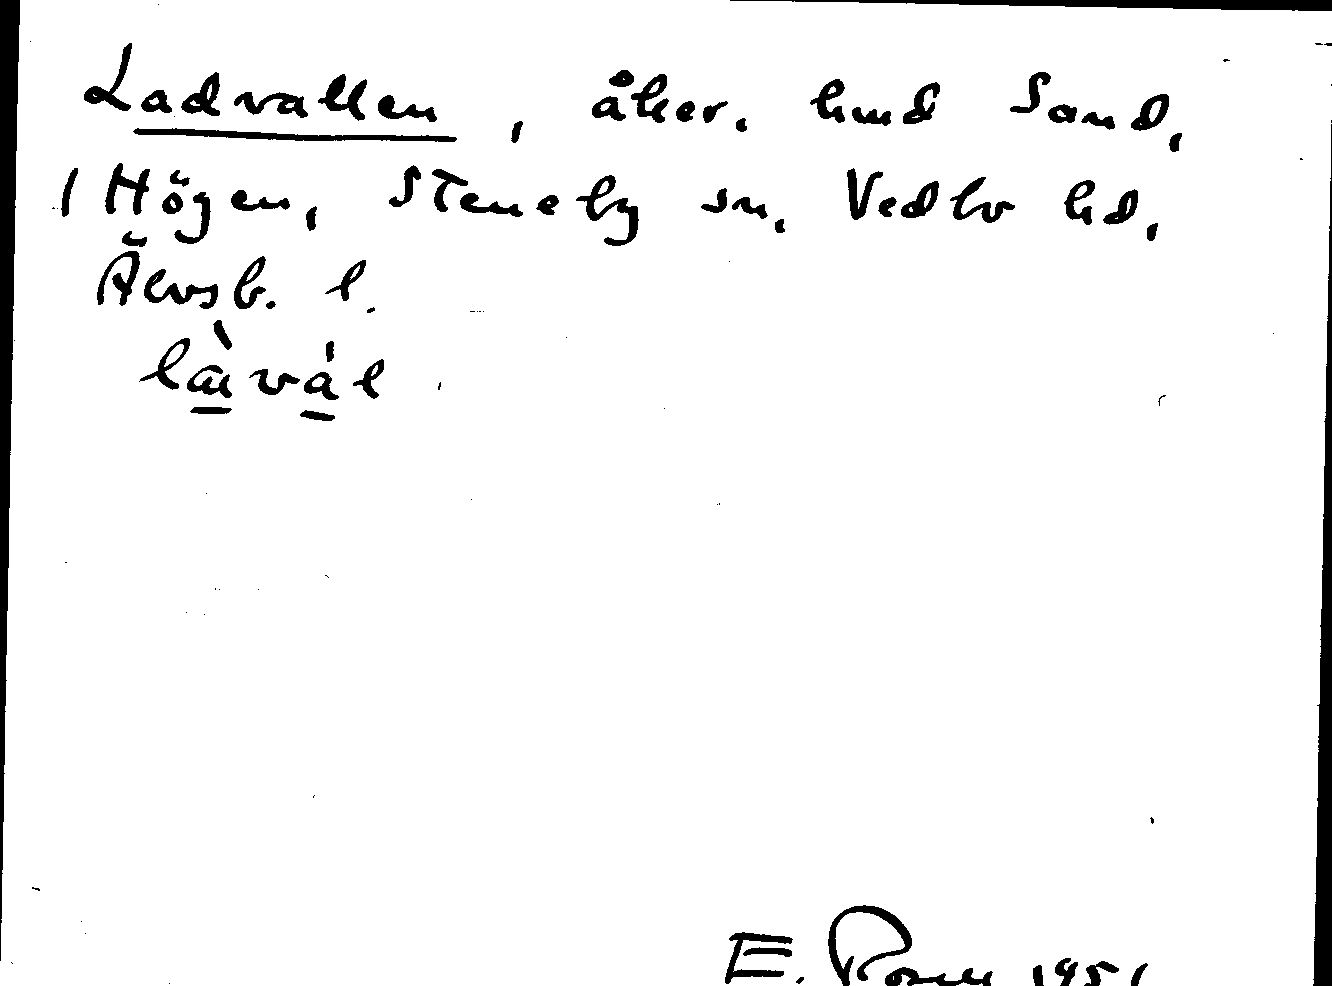 Ladvallen, åker. hmd Sand,
1 Högen, Steneby sn. Vedbo hd,
Älvsb. l.
E. Rosen 1951